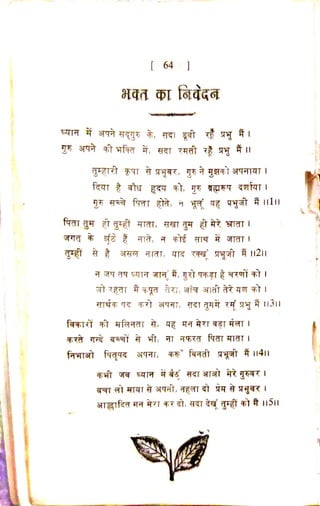 [ 64 ]
भक्त का निवेदन
ध्यान में अपने सद्गुरु के, सदा डूबी रहूँ प्रभु मैं ।
गुरु अपने की भक्ति में, सदा रमती रहूँ प्रभु मैं ॥
तुम्हारी कृपा से प्रभुवर, गुरु ने मुझको अपनाया ।
दिया है बोध हृदय को, गुरु ब्रह्मरूप दर्शाया ।
गुरु सच्चे पिता होते, न भूलूं यह प्रभुजी मैं ॥1॥
पिता तुम हो तुम्हीं माता, सखा तुम ही मेरे भ्राता ।
जगत के झूंठे हैं नाते, न कोई साथ में जाता ।
तुम्हीं से है असल नाता, याद रक्खूं प्रभुजी मैं ॥2॥
न जप तप ध्यान जानूं मैं, गुरो पकड़ा है चरणों को ।
जो रहता मैं कपूत तेरा, आंच आती तेरे यश को ।
सार्थक पद करो अपना, सदा तुममें रमूं प्रभु मैं ॥3॥
विकारों की मलिनता से, यह मन मेरा बड़ा मैला ।
करते गन्दे बच्चों से भी, ना नफरत पिता माता ।
निभाओ पितृपद अपना, करूं विनती प्रभुजी मैं ॥4॥
कभी जब ध्यान में बैठूं सदा आओ मेरे गुरुवर ।
बचा लो माया से अपनी, नहला दो प्रेम से प्रभुवर ।
आह्लादित मन मेरा कर दो, सदा देखूं तुम्हीं को मैं ॥5॥